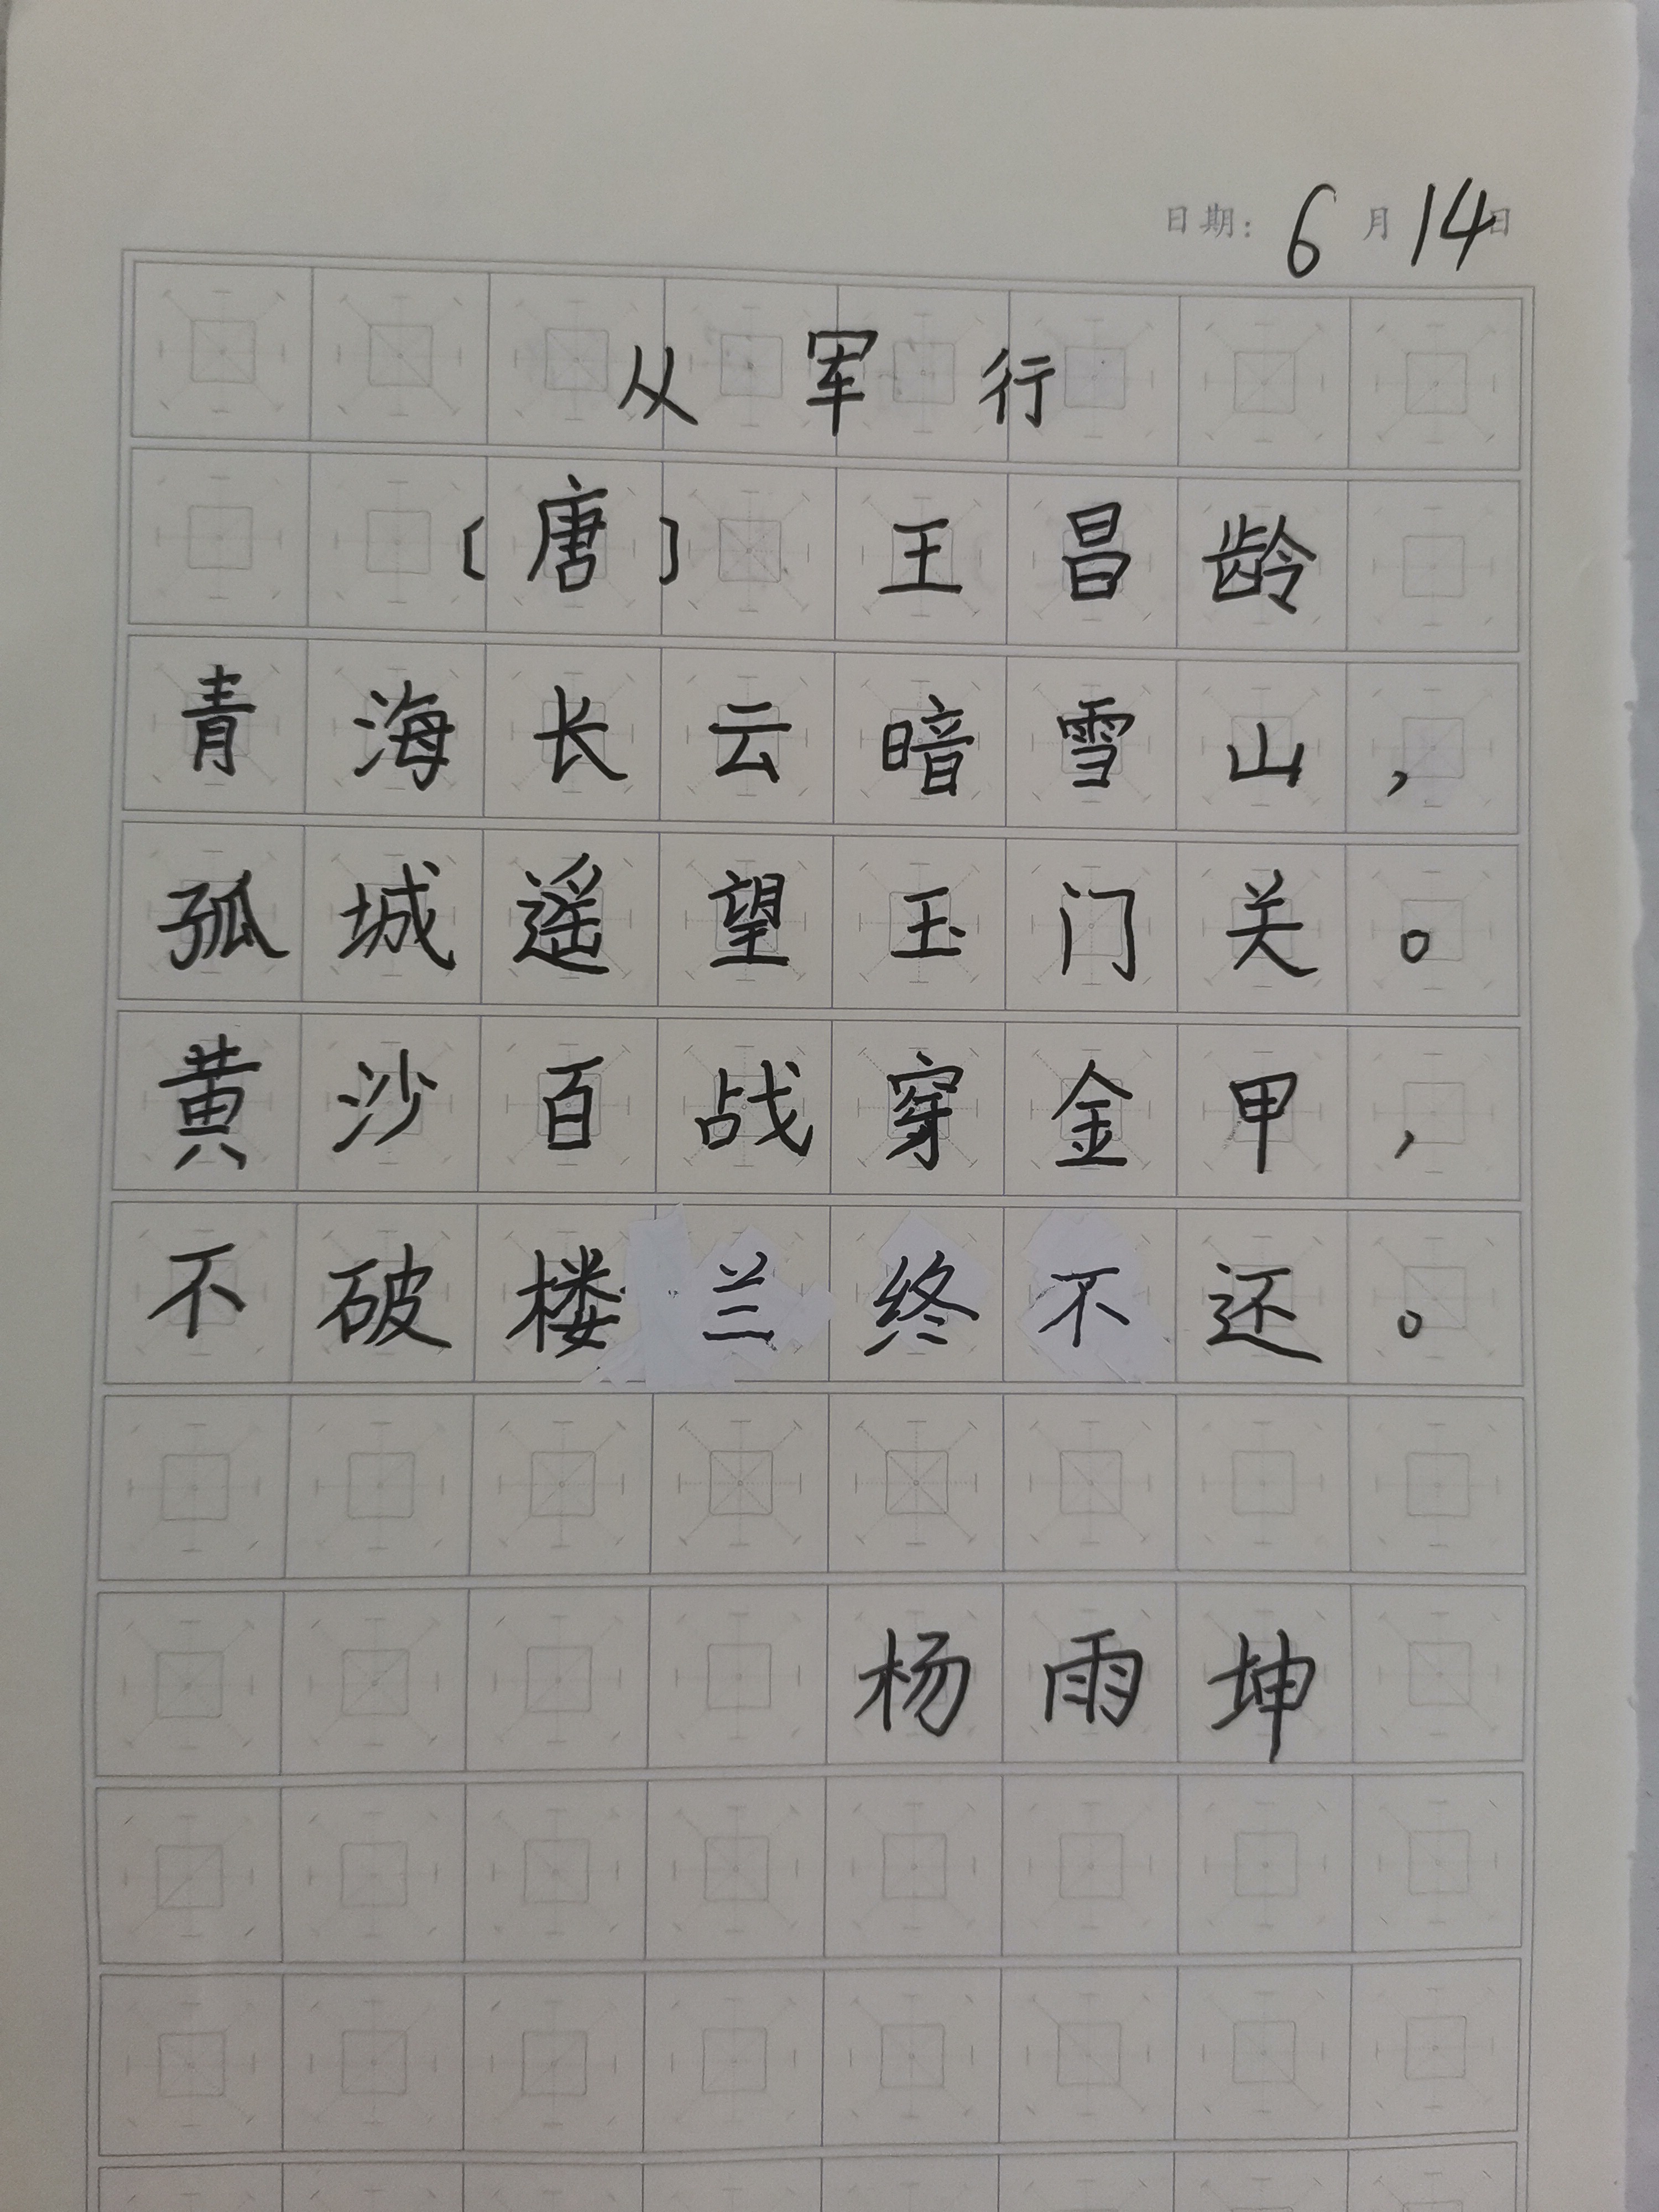 日期: 6月14日
从军行
〔唐〕 王昌龄
青海长云暗雪山，
孤城遥望玉门关。
黄沙百战穿金甲，
不破楼兰终不还。
杨雨坤